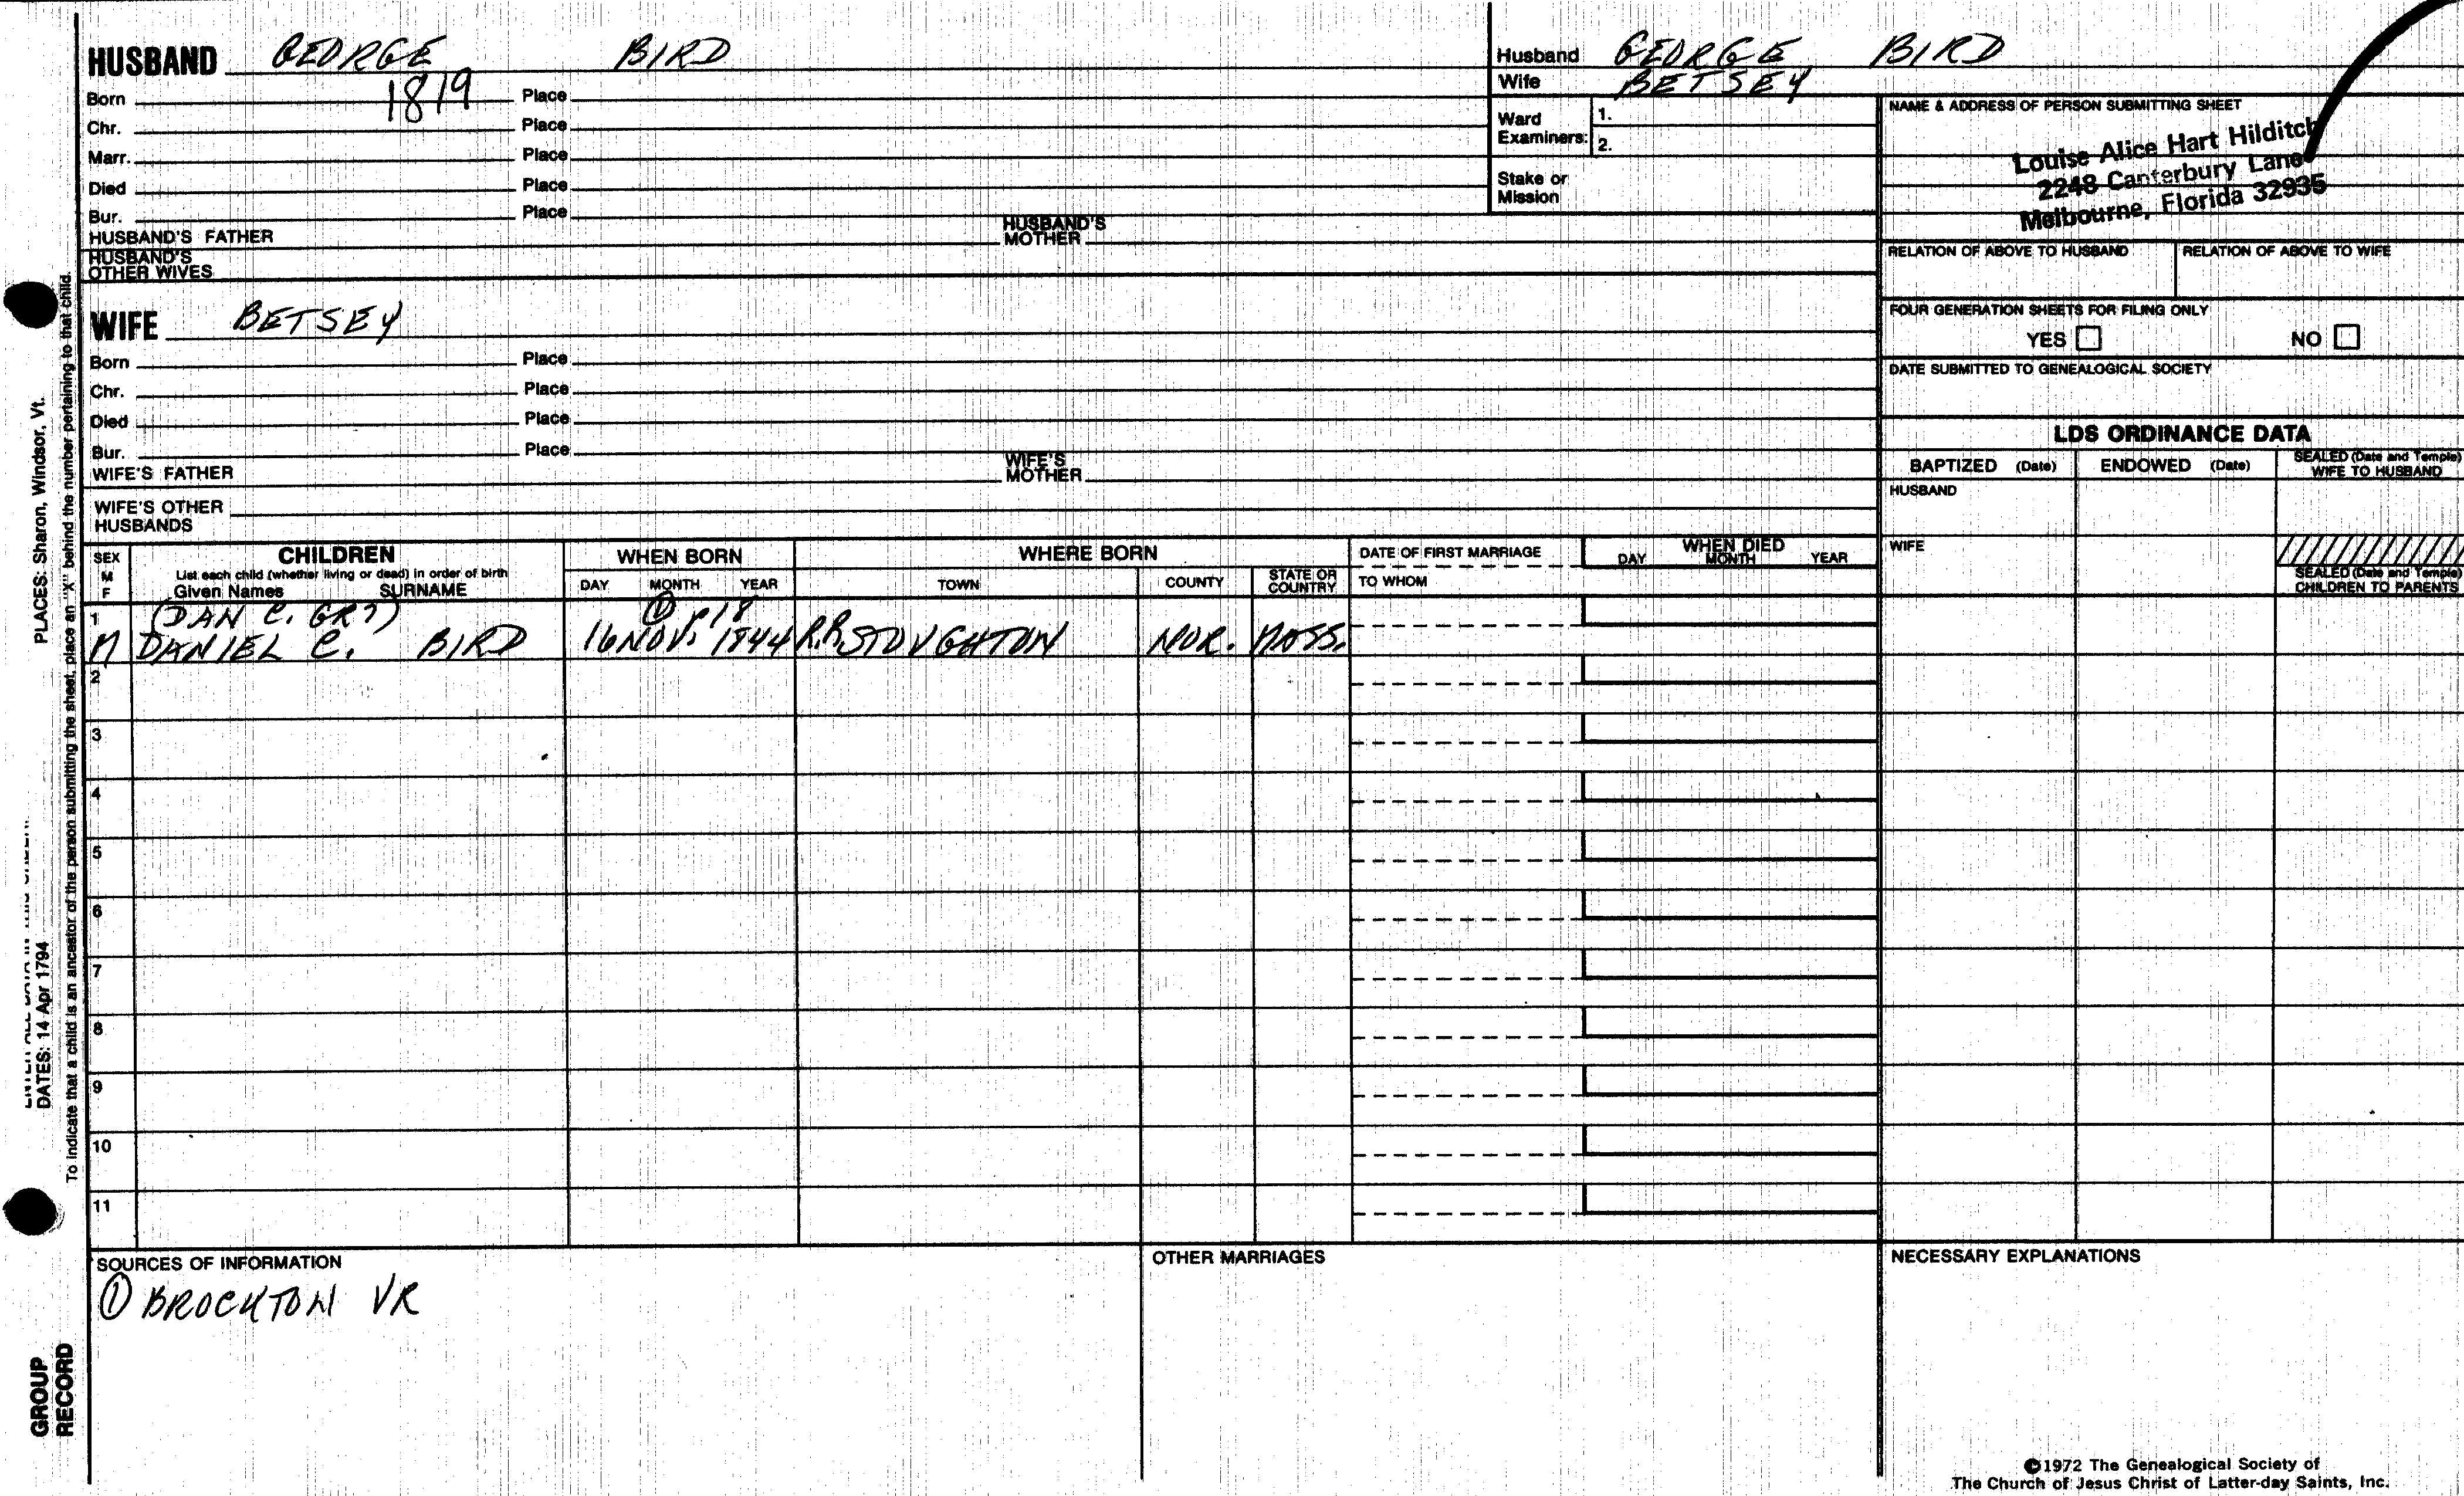 HUSBAND GEORGE BIRD
Born 1819 Place
Chr. Place
Marr. Place
Died Place
Bur. Place
HUSBAND'S FATHER HUSBAND'S MOTHER
HUSBAND'S OTHER WIVES
WIFE BETSEY
Born Place
Chr. Place
Died Place
Bur. Place
WIFE'S FATHER WIFE'S MOTHER
WIFE'S OTHER HUSBANDS
Husband GEORGE BIRD
Wife BETSEY
Ward Examiners: 1.
2.
Stake or Mission
NAME & ADDRESS OF PERSON SUBMITTING SHEET
Louise Alice Hart Hilditch
2248 Canterbury Lane
Melbourne, Florida 32935
RELATION OF ABOVE TO HUSBAND RELATION OF ABOVE TO WIFE
FOUR GENERATION SHEETS FOR FILING ONLY
YES NO
DATE SUBMITTED TO GENEALOGICAL SOCIETY
LDS ORDINANCE DATA
BAPTIZED (Date) ENDOWED (Date) SEALED (Date and Temple) WIFE TO HUSBAND
HUSBAND
WIFE
SEALED (Date and Temple) CHILDREN TO PARENTS
SEX M F
CHILDREN
List each child (whether living or dead) in order of birth
Given Names SURNAME
WHEN BORN
DAY MONTH YEAR
WHERE BORN
TOWN COUNTY STATE OR COUNTRY
DATE OF FIRST MARRIAGE
TO WHOM
WHEN DIED
DAY MONTH YEAR
1 (DAN C. GR?) ① P18
M DANIEL C. BIRD 16 NOV. 1844 R.R. STOUGHTON NOR. MASS.
2
3
4
5
6
7
8
9
10
11
SOURCES OF INFORMATION
① BROCKTON VR
OTHER MARRIAGES
NECESSARY EXPLANATIONS
©1972 The Genealogical Society of
The Church of Jesus Christ of Latter-day Saints, Inc.
PLACES: Sharon, Windsor, Vt.
DATES: 14 Apr 1794
To indicate that a child is an ancestor of the person submitting the sheet, place an "X" behind the number pertaining to that child.
GROUP
RECORD